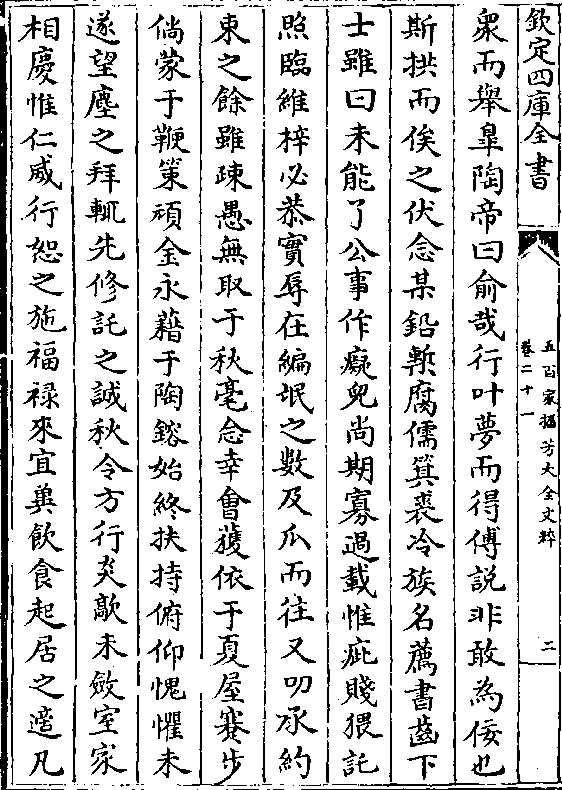 欽定四庫全書
五百家播芳大全文粹
卷二十一
二
衆而舉臯陶帝曰俞哉行叶夢而得傅説非敢為佞也
斯拱而俟之伏念某鉛槧腐儒箕裘冷族名薦書齒下
士雖曰未能了公事作癡兒尚期寡過載惟疵賤猥託
照臨維梓必恭實辱在編氓之數及瓜而往又叨承約
束之餘雖疎愚無取于秋毫念幸會獲依于夏屋蹇步
倘蒙于鞭策頑金永藉于陶鎔始終扶持俯仰愧懼未
遂望塵之拜輒先修託之誠秋令方行炎歊未斂室家
相慶惟仁威行恕之施福祿來宜兾飲食起居之適凡